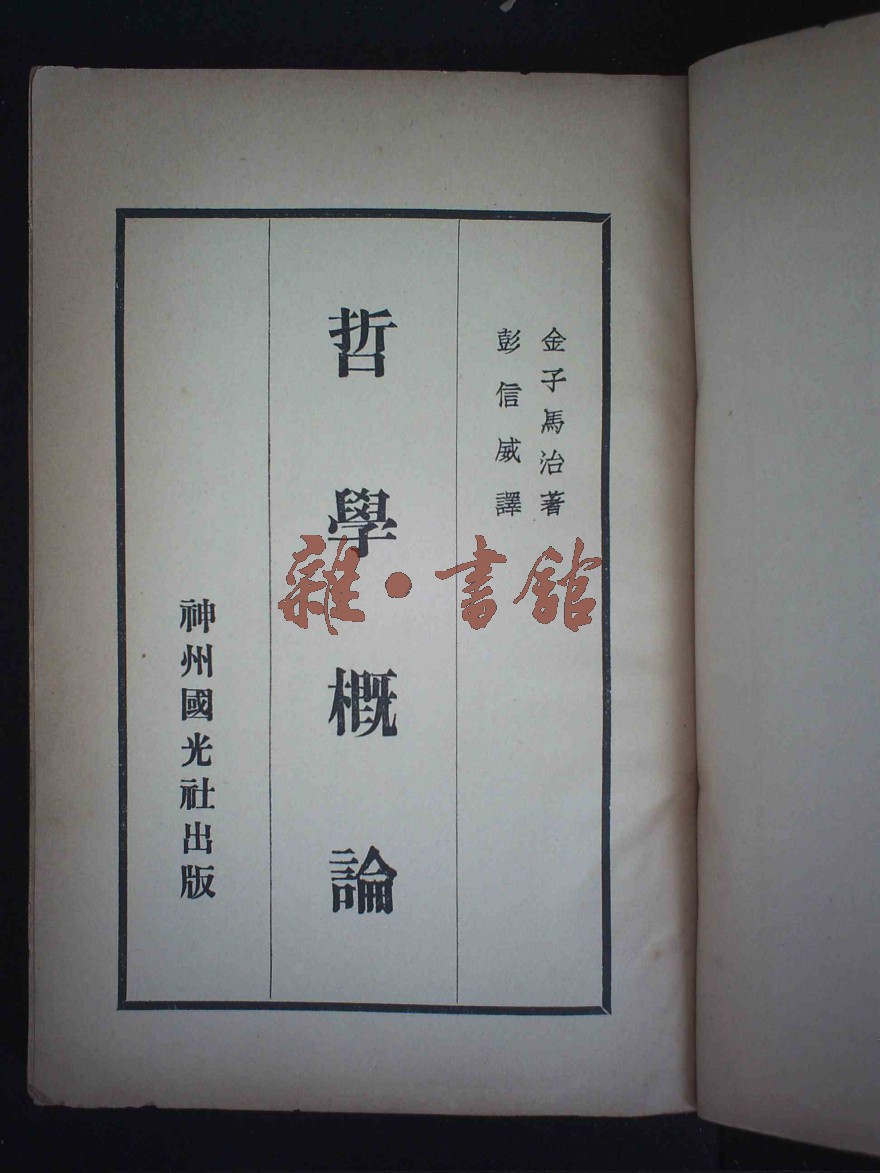 金子馬治著
彭信威譯
哲學概論
神州國光社出版
雜·書館